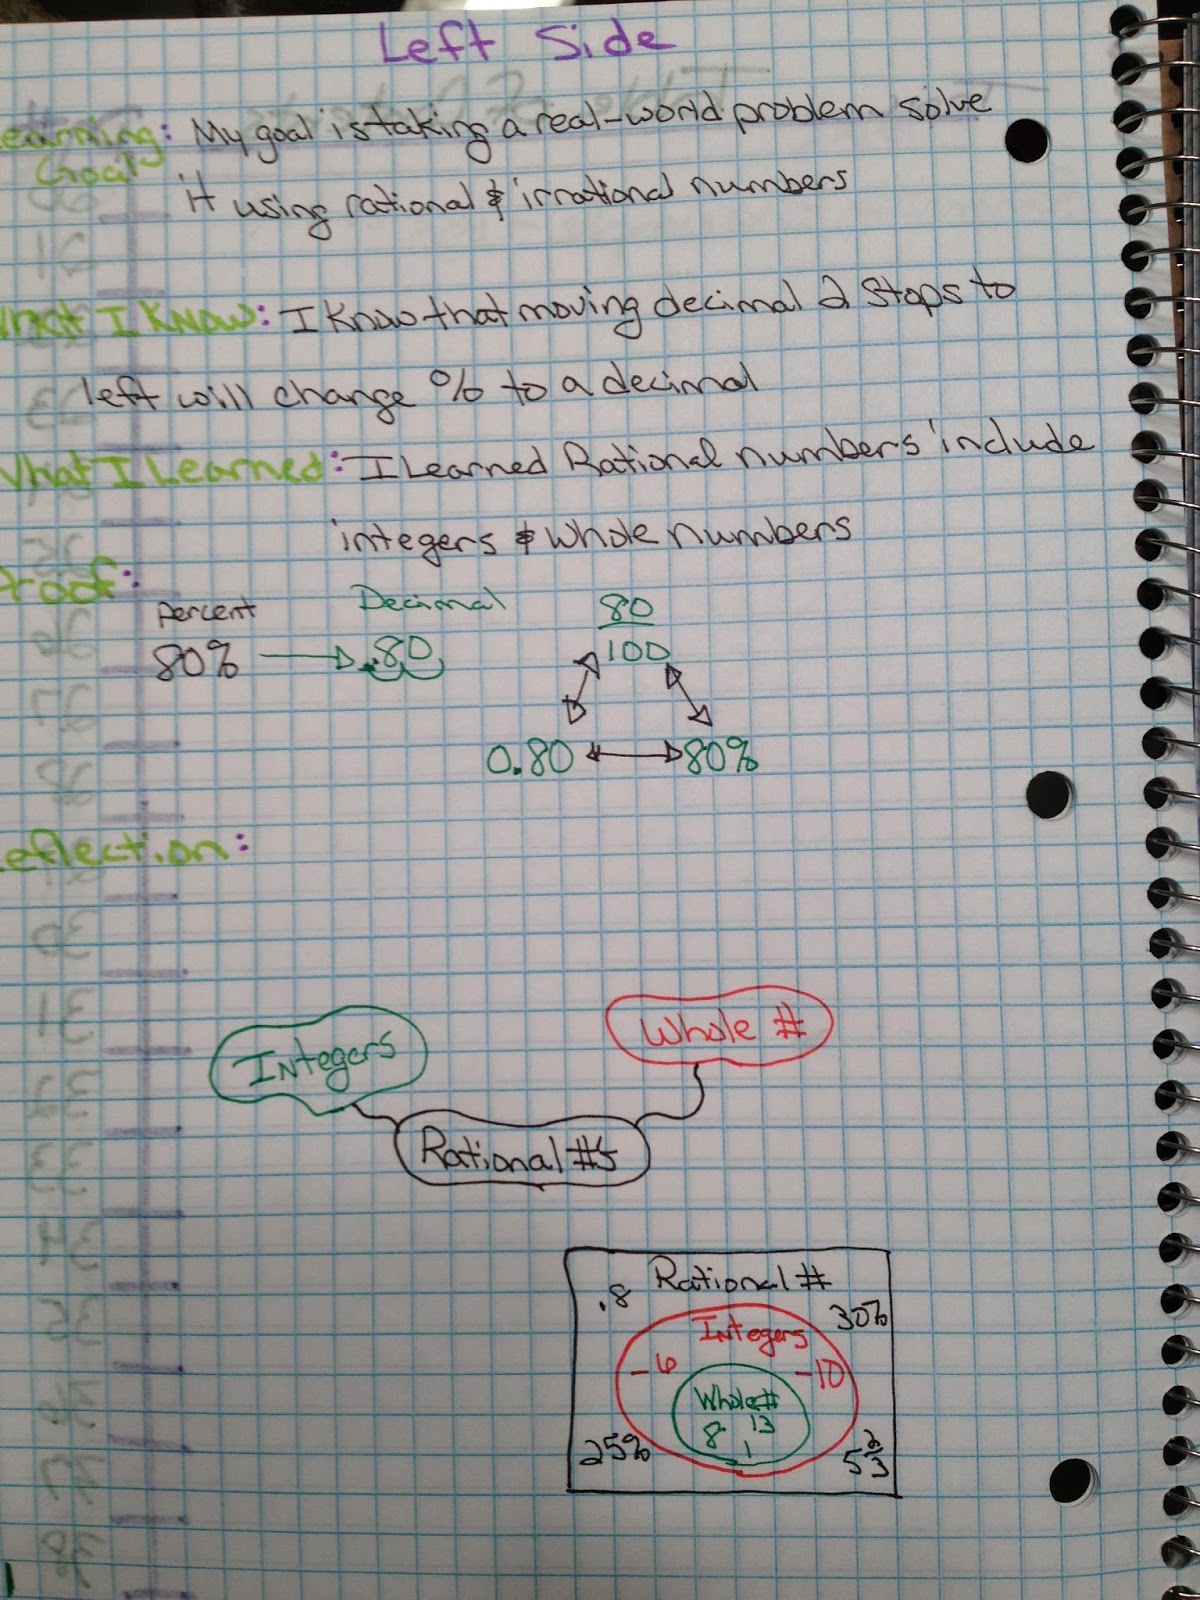 Left Side
earning: My goal is taking a real-world problem solve
Goal
it using rational & irrational numbers
What I Know: I Know that moving decimal 2 stops to
left will change % to a decimal
What I Learned: I Learned Rational numbers include
integers & whole numbers
Proof:
Percent Decimal 80
80% .80 100
0.80 80%
eflection:
Integers Whole #
Rational #s
Rational #
.8 30%
Integers
-6 -10
Whole#
8 13
1
25% 5 2/3